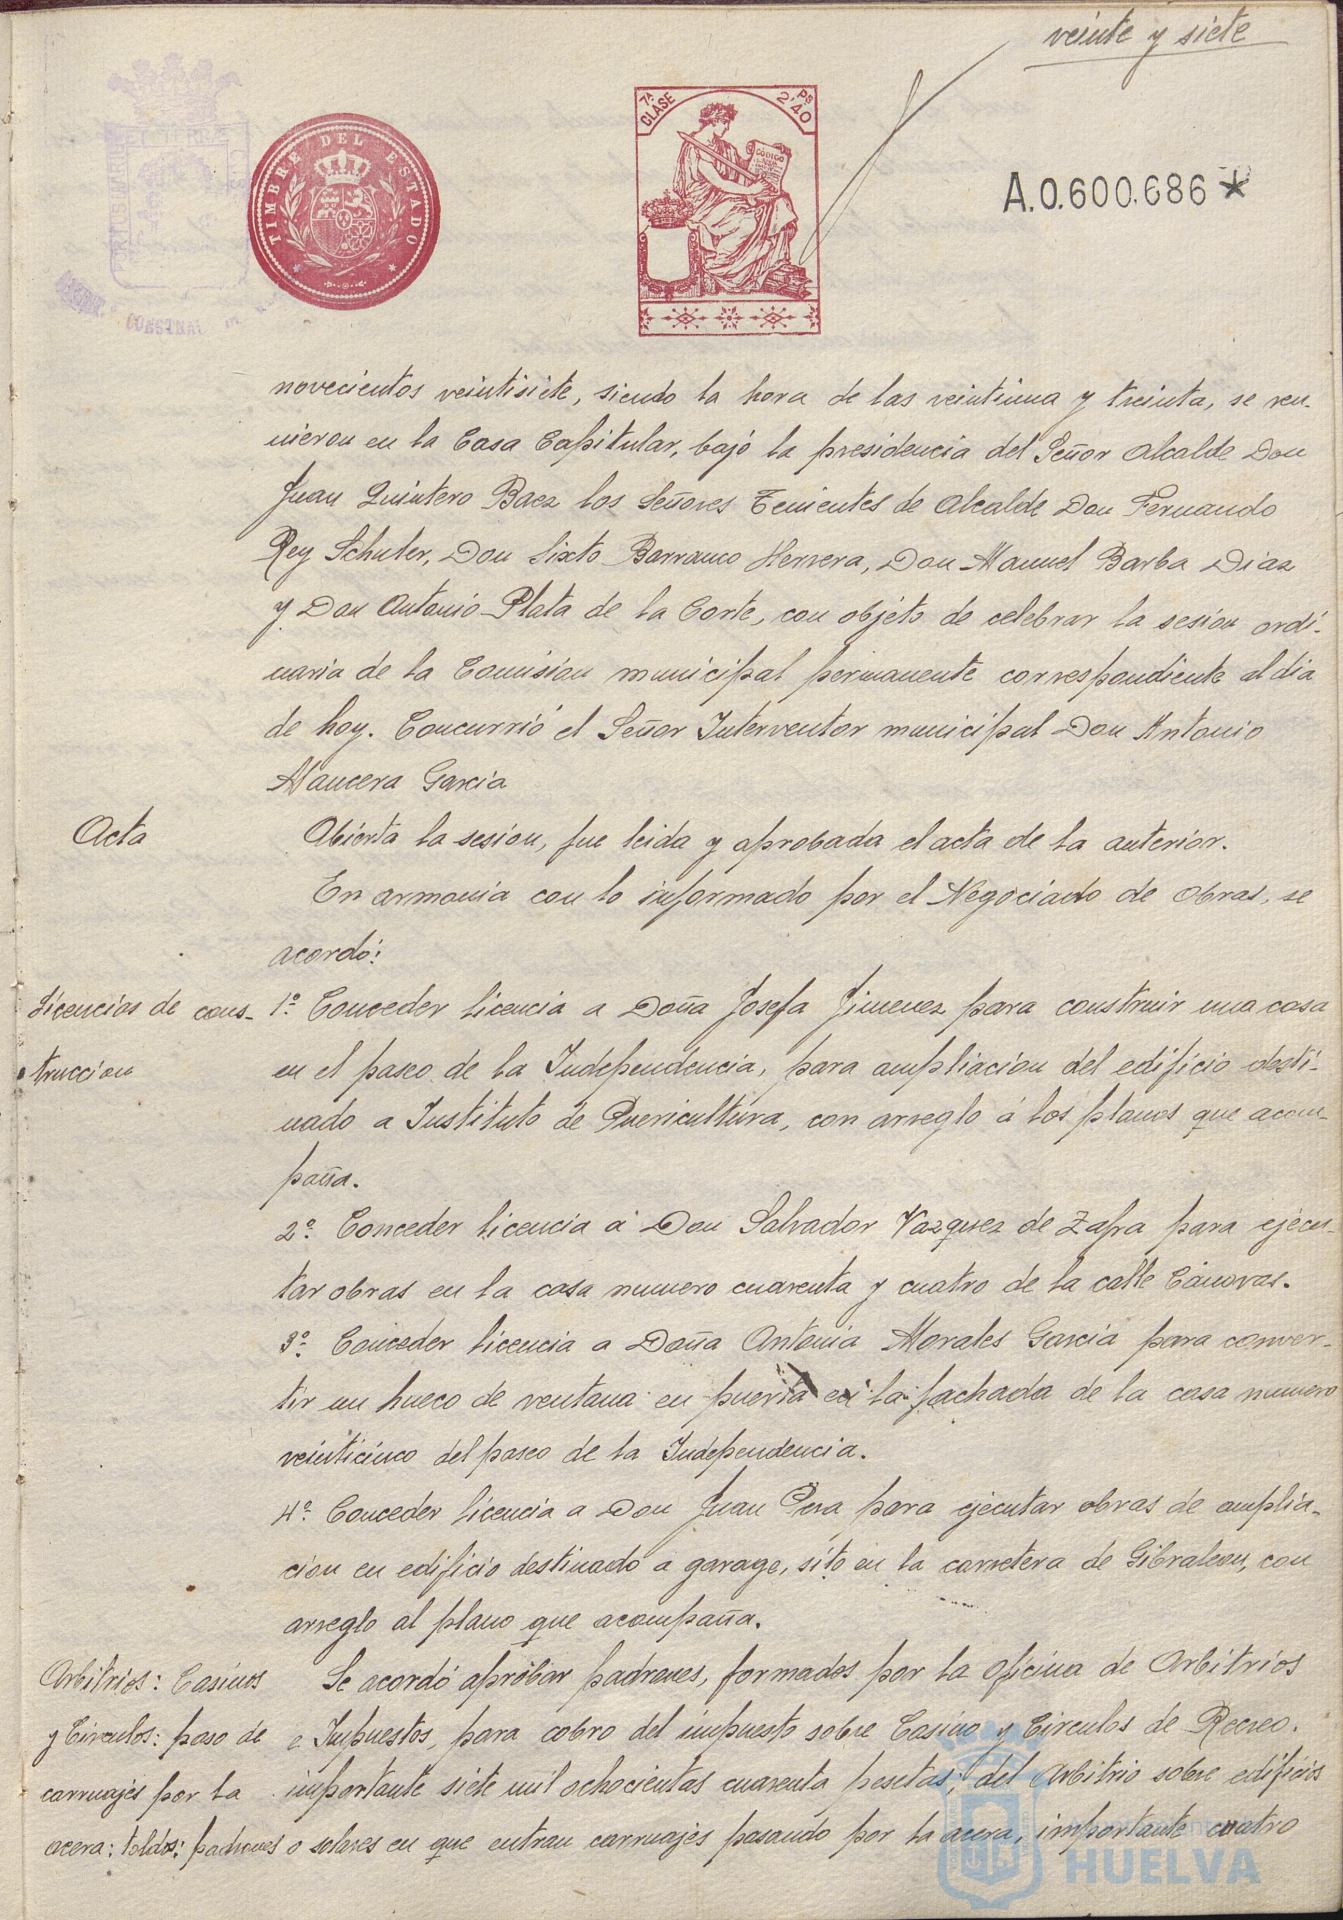 veinte y siete
TIMBRE DEL ESTADO
7ª CLASE
2'40 Ps
CODIGO
A.0.600.686*
novecientos veintisiete, siendo la hora de las veintiuna y treinta, se reu-
nieron en la Casa Capitular, bajo la presidencia del Señor Alcalde Don
Juan Quintero Baez los Señores Tenientes de Alcalde Don Fernando
Rey Schuler, Don Sixto Barranco Herrera, Don Manuel Barba Diaz
y Don Antonio Plata de la Corte, con objeto de celebrar la sesion ordi-
naria de la Comision municipal permanente correspondiente al dia
de hoy. Concurrió el Señor Interventor municipal Don Antonio
Mancera Garcia
Acta
Abierta la sesion, fue leida y aprobada el acta de la anterior.
En armonia con lo informado por el Negociado de Obras, se
acordó:
Licencias de cons-
truccion
1º Conceder licencia a Doña Josefa Jimenez para construir una casa
en el paseo de la Independencia, para ampliacion del edificio desti-
nado a Instituto de Puericultura, con arreglo á los planos que acom-
paña.
2º Conceder licencia á Don Salvador Vazquez de Zafra para ejecu-
tar obras en la casa numero cuarenta y cuatro de la calle Cánovas.
3º Conceder licencia a Doña Antonia Morales Garcia para conver-
tir un hueco de ventana en puerta en la fachada de la casa numero
veinticinco del paseo de la Independencia.
4º Conceder licencia a Don Juan para ejecutar obras de amplia-
cion en edificio destinado a garage, sito en la carretera de Gibraleon, con
arreglo al plano que acompaña.
Arbitrios: Casinos
y Circulos: paso de
carruajes por la
acera: toldos: padrones
Se acordó aprobar padrones, formados por la oficina de Arbitrios
e Impuestos, para cobro del impuesto sobre Casino y Circulos de Recreo.
importante siete mil ochocientas cuarenta pesetas; del Arbitrio sobre edificios
o solares en que entran carruajes pasando por la acera, importante cuatro
HUELVA